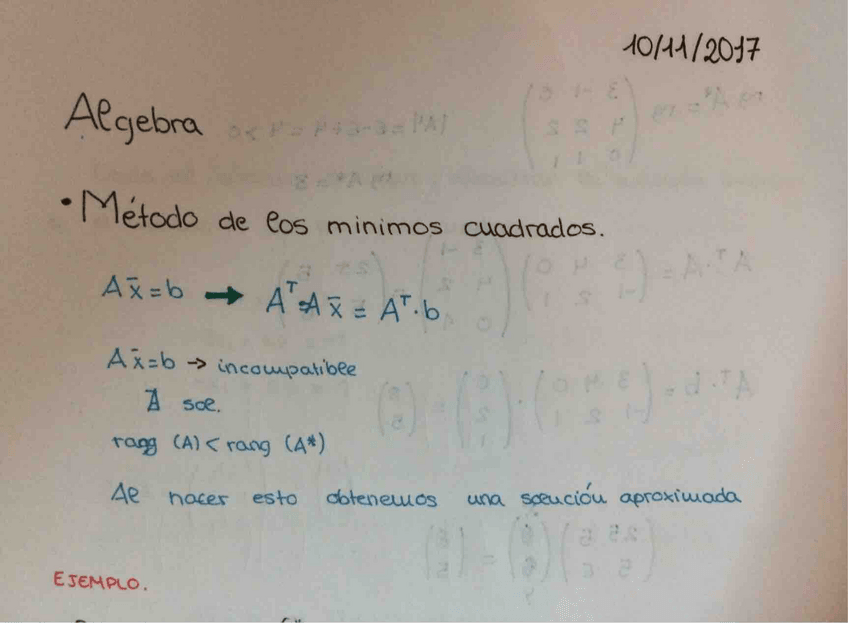 10/11/2017
Algebra
• Método de los minimos cuadrados.
A x̄ = b → Aᵀ·A x̄ = Aᵀ·b
A x̄ = b → incompatible
∄ sol.
rang (A) < rang (A*)
Al hacer esto obtenemos una solución aproximada
EJEMPLO.